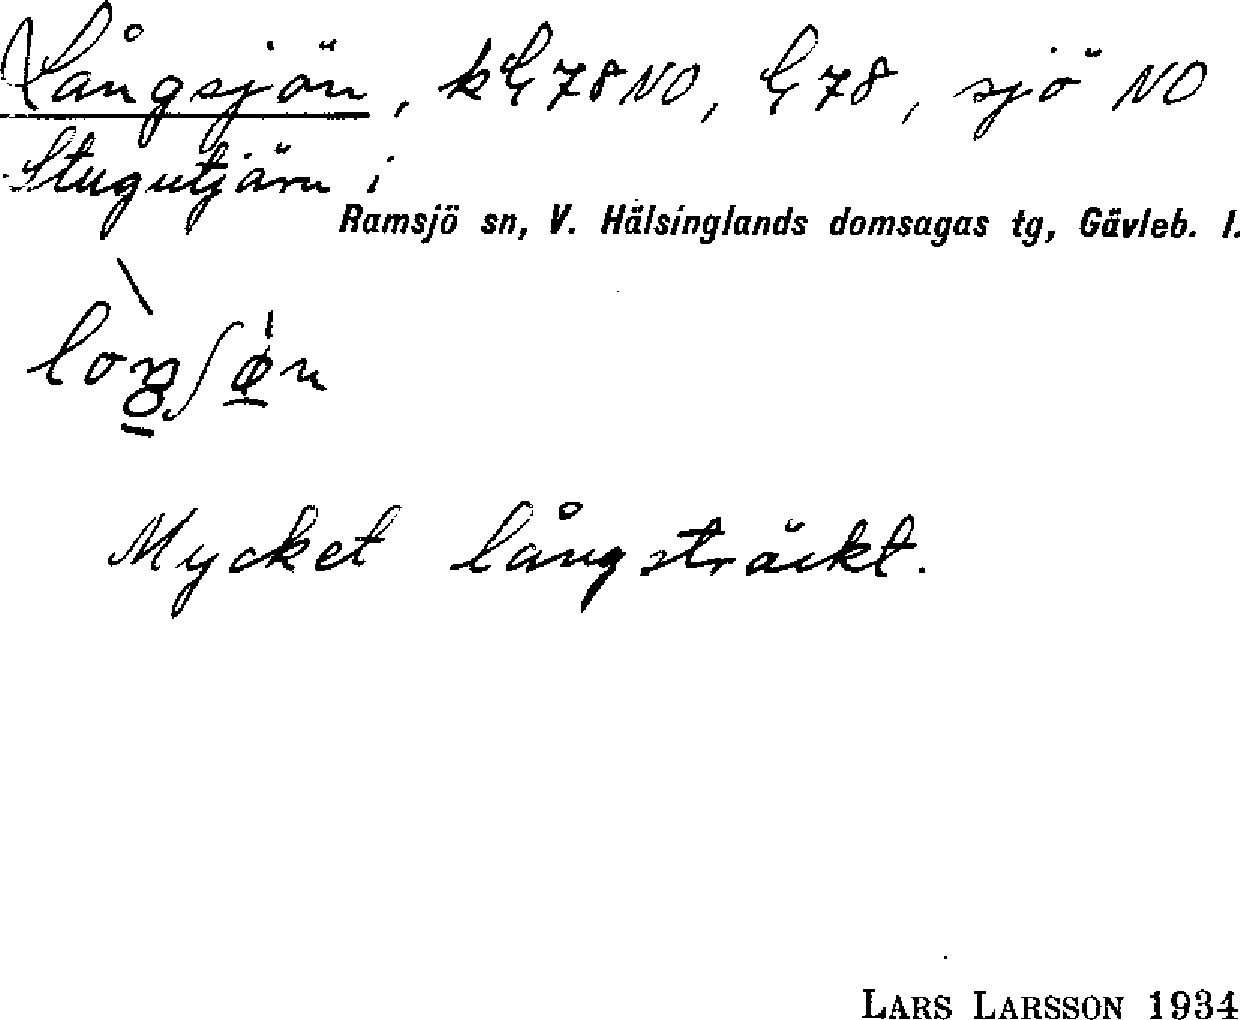 Långsjön, kG78NO, G78, sjö NO
Stugutjärn i
Ramsjö sn, V. Hälsinglands domsagas tg, Gävleb. l.
Mycket långsträckt.
LARS LARSSON 1934